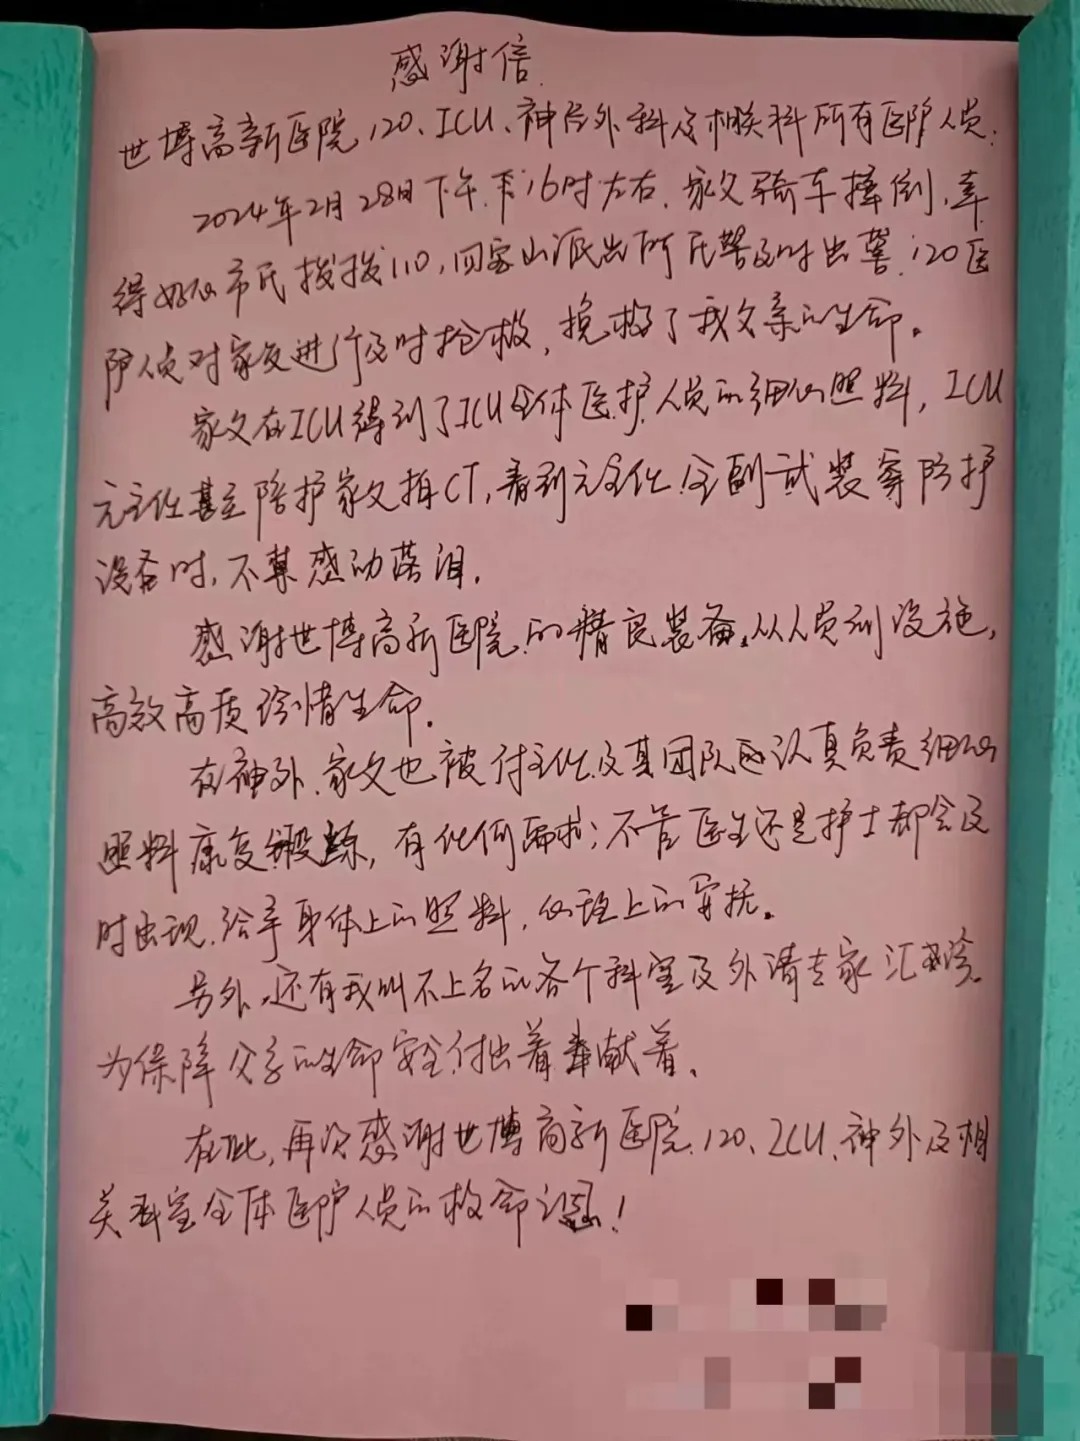 感谢信
世博高新医院120、ICU、神经外科及相关科所有医护人员:
2024年2月28日下午16时左右,家父骑车摔倒,幸
得好心市民拨110,四宝山派出所民警及时出警,120医
护人员对家父进行及时抢救,挽救了我父亲的生命。
家父在ICU得到了ICU全体医护人员的细心照料,ICU
亓主任甚至陪护家父拍CT,看到亓主任全副武装穿防护
设备时,不禁感动落泪。
感谢世博高新医院的精良装备,从人员到设施,
高效高质珍惜生命。
在神外,家父也被付主任及其团队认真负责细心
照料康复锻炼,有任何需求;不管医生还是护士都会及
时出现,给予身体上的照料,心理上的安抚。
另外,还有我叫不上名的各个科室及外请专家汇诊,
为保障父亲的生命安全付出着奉献着。
在此,再次感谢世博高新医院,120、ICU、神外及相
关科室全体医护人员的救命之恩!